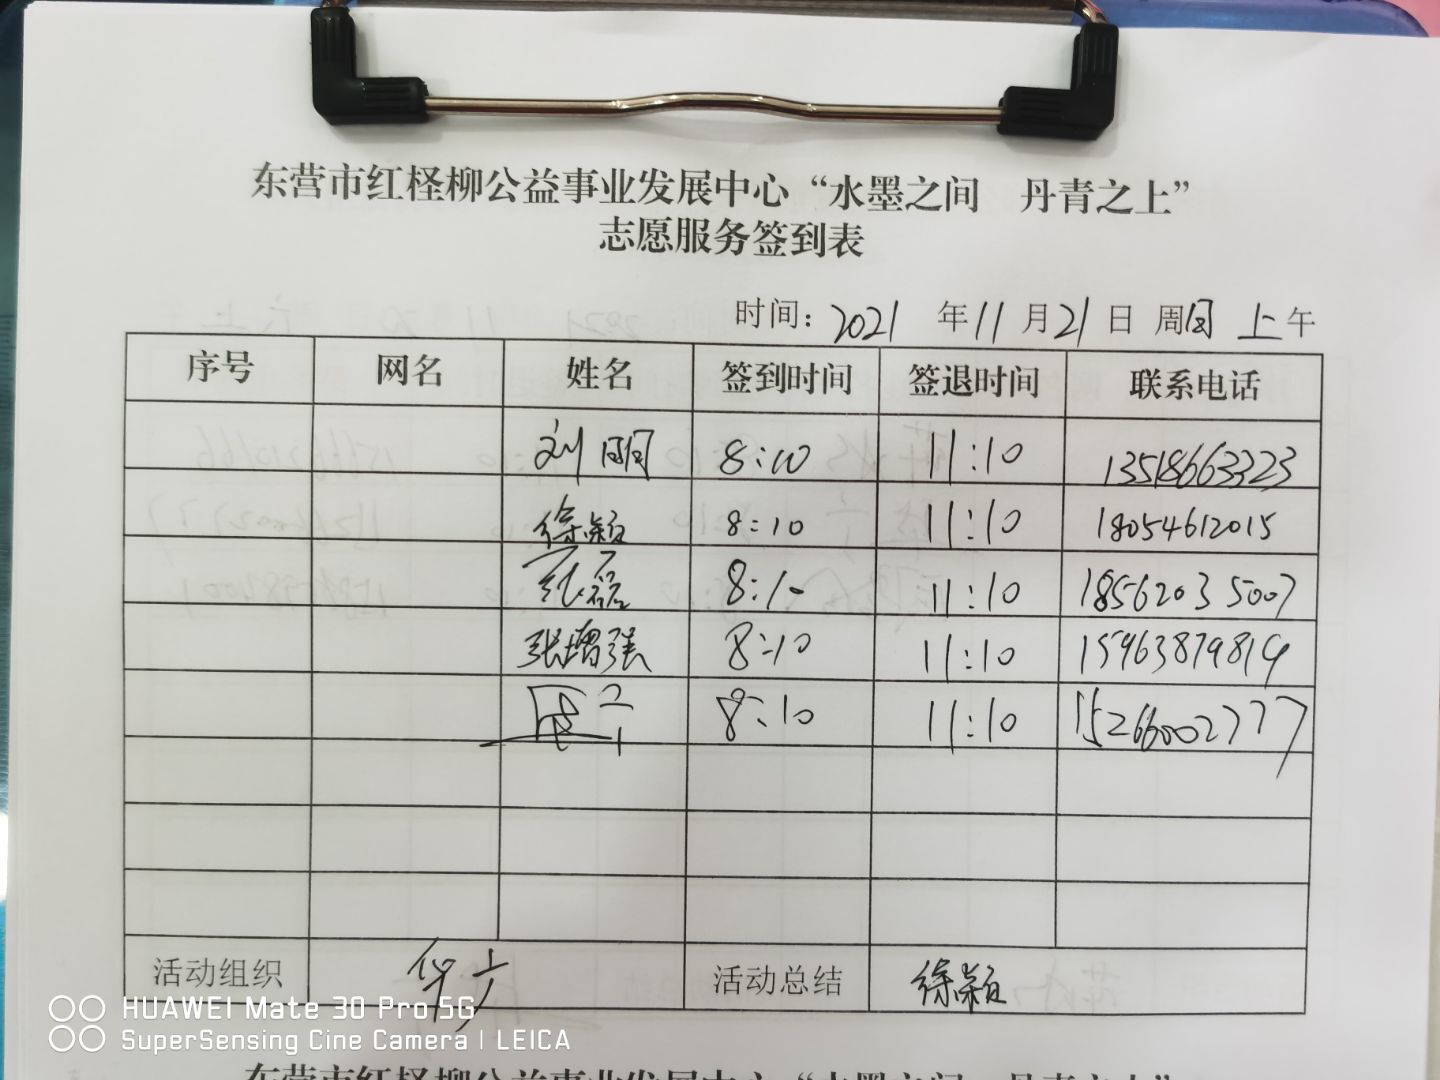 东营市红柽柳公益事业发展中心“水墨之间 丹青之上”
志愿服务签到表
时间：2021 年 11 月 21 日 周日 上午
序号 网名 姓名 签到时间 签退时间 联系电话
刘明明 8:10 11:10 13518663323
徐颖 8:10 11:10 18054612015
张磊 8:10 11:10 18562035007
张增强 8:10 11:10 15963879819
8:10 11:10 15266002777
活动组织 活动总结 徐颖
HUAWEI Mate 30 Pro 5G
SuperSensing Cine Camera | LEICA
东营市红柽柳公益事业发展中心“水墨之间 丹青之上”